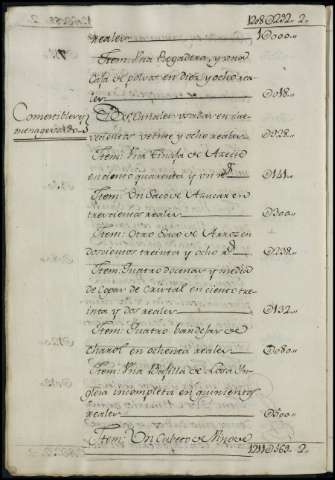 128@292. 2.
reales 10000..
Item: Una Regadera, y una
Caja de polvos en diez y ocho rea-
les @018..
Comestibles y
menages de casa
Dos Costales en nue-
vecientos veinte y ocho reales @928..
Item: Una Tinaja de Azeite
en ciento quarenta y un rs @141..
Item: Un Saco de Azucar en
trescientos reales @300..
Item: Otro Saco de Arroz en
doscientos treinta y ocho rs @238..
Item: Quatro docenas y media
de Copas de Cristal en ciento tre-
inta y dos reales @132..
Item: Quatro bandejas de
charol en ochenta reales @080..
Item: Una Bajilla de Loza In-
glesa incompleta en quinientos
reales @500..
Item: Un Cubierto de